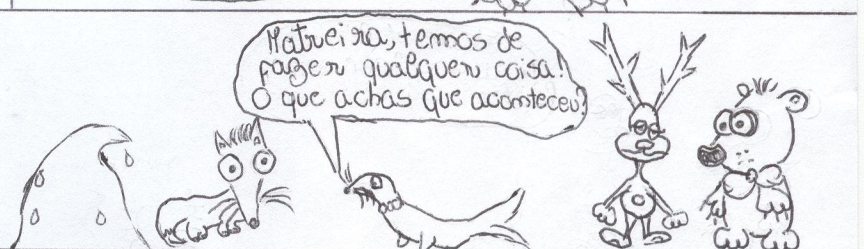 Matreira, temos de
fazer qualquer coisa!
O que achas que aconteceu?